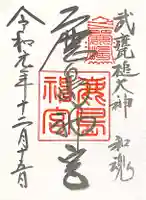 武甕槌大神 和魂
鹿島神宮
鹿島神宮
令和元年十二月十五日